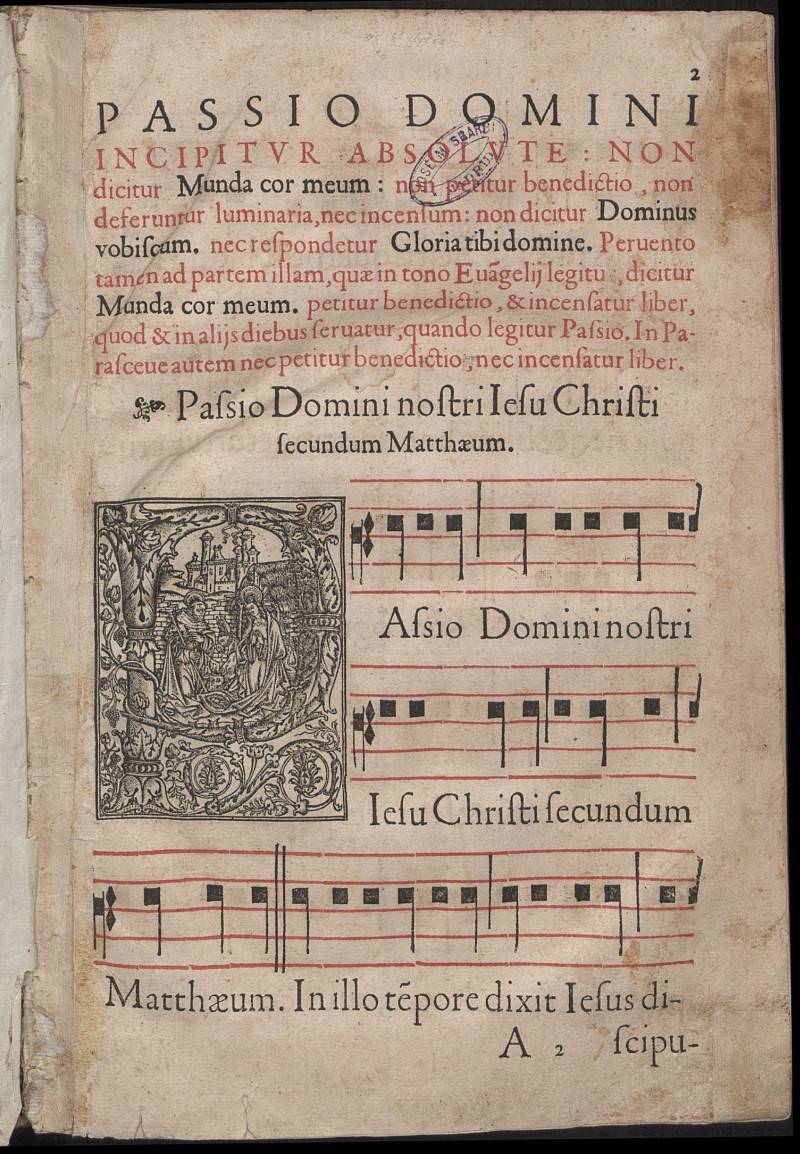 2
PASSIO DOMINI
INCIPITVR ABSOLVTE: NON
dicitur Munda cor meum: non petitur benedictio, non
deferuntur luminaria, nec incensum: non dicitur Dominus
vobiſcum. nec reſpondetur Gloria tibi domine. Peruento
tamen ad partem illam, quæ in tono Euãgelij legitu, dicitur
Munda cor meum. petitur benedictio, & incenſatur liber,
quod & in alijs diebus ſeruatur, quando legitur Paſsio. In Pa-
raſceue autem nec petitur benedictio, nec incenſatur liber.
Paſsio Domini noſtri Ieſu Chriſti
ſecundum Matthæum.
Aſsio Domini noſtri
Ieſu Chriſti ſecundum
Matthæum. In illo tẽpore dixit Ieſus di-
A 2 ſcipu-